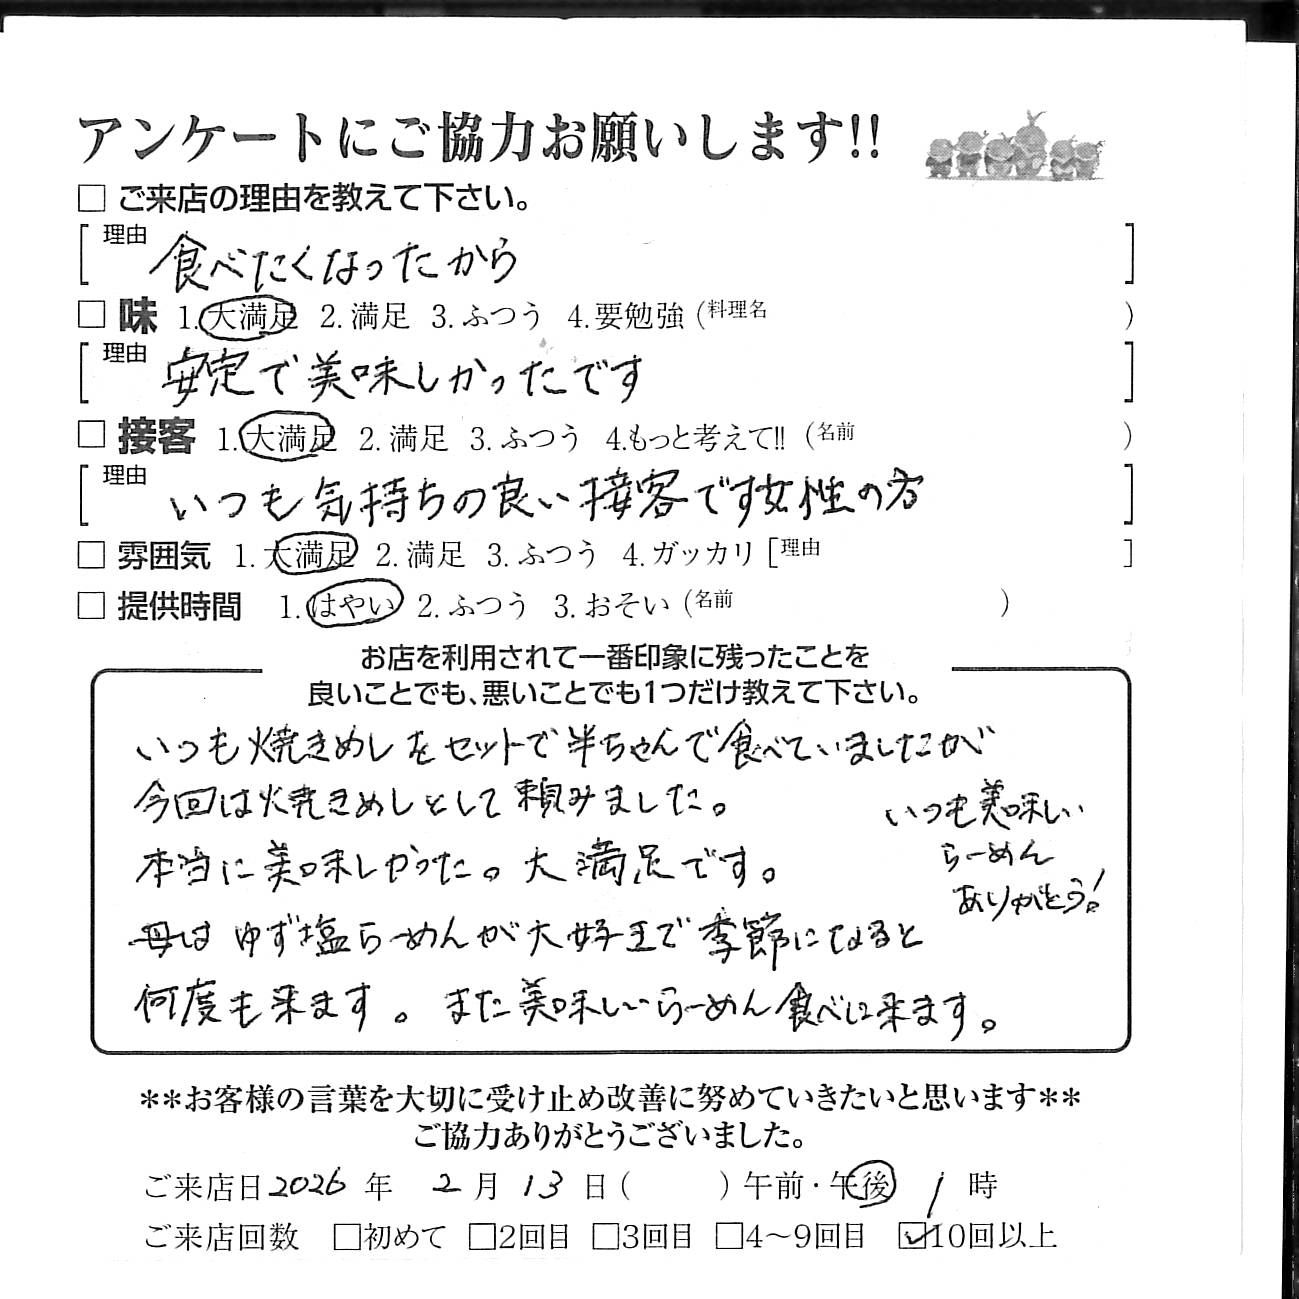 アンケートにご協力お願いします!!
□ ご来店の理由を教えて下さい。
[理由 食べたくなったから]
□ 味 1.大満足 2.満足 3.ふつう 4.要勉強 (料理名 )
[理由 安定で美味しかったです]
□ 接客 1.大満足 2.満足 3.ふつう 4.もっと考えて!! (名前 )
[理由 いつも気持ちの良い接客です女性の方]
□ 雰囲気 1.大満足 2.満足 3.ふつう 4.ガッカリ [理由 ]
□ 提供時間 1.はやい 2.ふつう 3.おそい (名前 )
お店を利用されて一番印象に残ったことを
良いことでも、悪いことでも1つだけ教えて下さい。
いつも焼きめしをセットで半ちゃんで食べていましたが
今回は焼きめしとして頼みました。
本当に美味しかった。大満足です。
母はゆず塩らーめんが大好王で季節になると
何度も来ます。また美味しいらーめん食べに来ます。
いつも美味しい
らーめん
ありがとう!
**お客様の言葉を大切に受け止め改善に努めていきたいと思います**
ご協力ありがとうございました。
ご来店日2026年 2月13日( )午前・午後 1時
ご来店回数 □初めて □2回目 □3回目 □4〜9回目 ☑10回以上